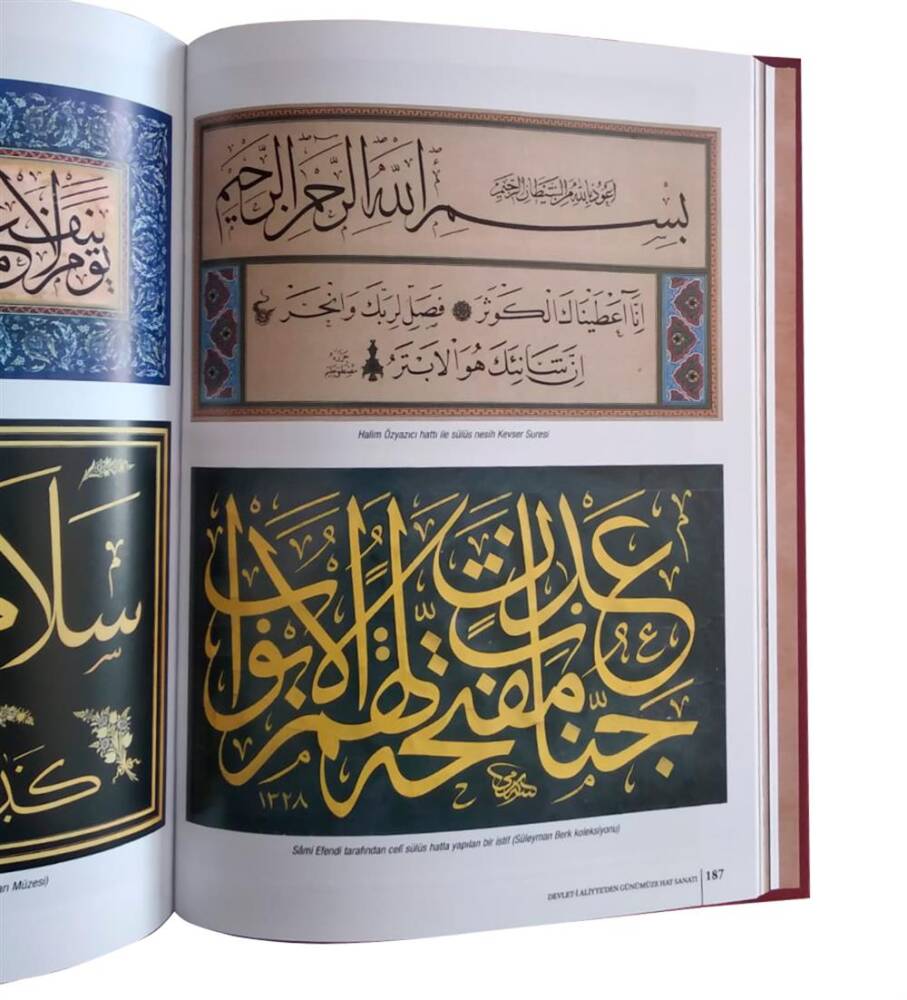 يوم لا ينفع
سلام
بسم الله الرحمن الرحيم
اعوذ بالله من الشيطان الرجيم
انا اعطيناك الكوثر فصل لربك وانحر
ان شانئك هو الابتر
Halim Özyazıcı hattı ile sülüs nesih Kevser Suresi
جنات عدن مفتحة لهم الابواب
١٣٢٨
Sâmi Efendi tarafından celî sülüs hatla yapılan bir istif (Süleyman Berk koleksiyonu)
arı Müzesi)
DEVLET-İ ALİYYE'DEN GÜNÜMÜZE HAT SANATI 187